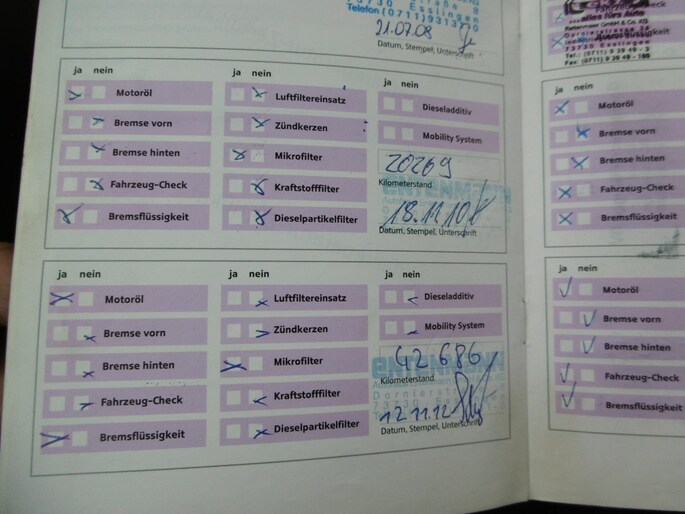 73730 Esslingen
Telefon (0711) 931330
21.07.08
Datum, Stempel, Unterschrift
ja nein
Motoröl
Bremse vorn
Bremse hinten
Fahrzeug-Check
Bremsflüssigkeit
ja nein
Luftfiltereinsatz
Zündkerzen
Mikrofilter
Kraftstofffilter
Dieselpartikelfilter
ja nein
Dieseladditiv
Mobility System
20269
Kilometerstand
ENTENMANN
18.11.10
Datum, Stempel, Unterschrift
ja nein
Motoröl
Bremse vorn
Bremse hinten
Fahrzeug-Check
Bremsflüssigkeit
ja nein
Luftfiltereinsatz
Zündkerzen
Mikrofilter
Kraftstofffilter
Dieselpartikelfilter
ja nein
Dieseladditiv
Mobility System
42686
ENTENMANN
Kilometerstand
12.11.12
Datum, Stempel, Unterschrift
...alles fürs Auto
73730 Esslingen
Tel.: (0711) 9 39 49 - 3
Fax: (0711) 9 39 49 - 169
ja nein
Motoröl
Bremse vorn
Bremse hinten
Fahrzeug-Check
Bremsflüssigkeit
ja nein
Motoröl
Bremse vorn
Bremse hinten
Fahrzeug-Check
Bremsflüssigkeit